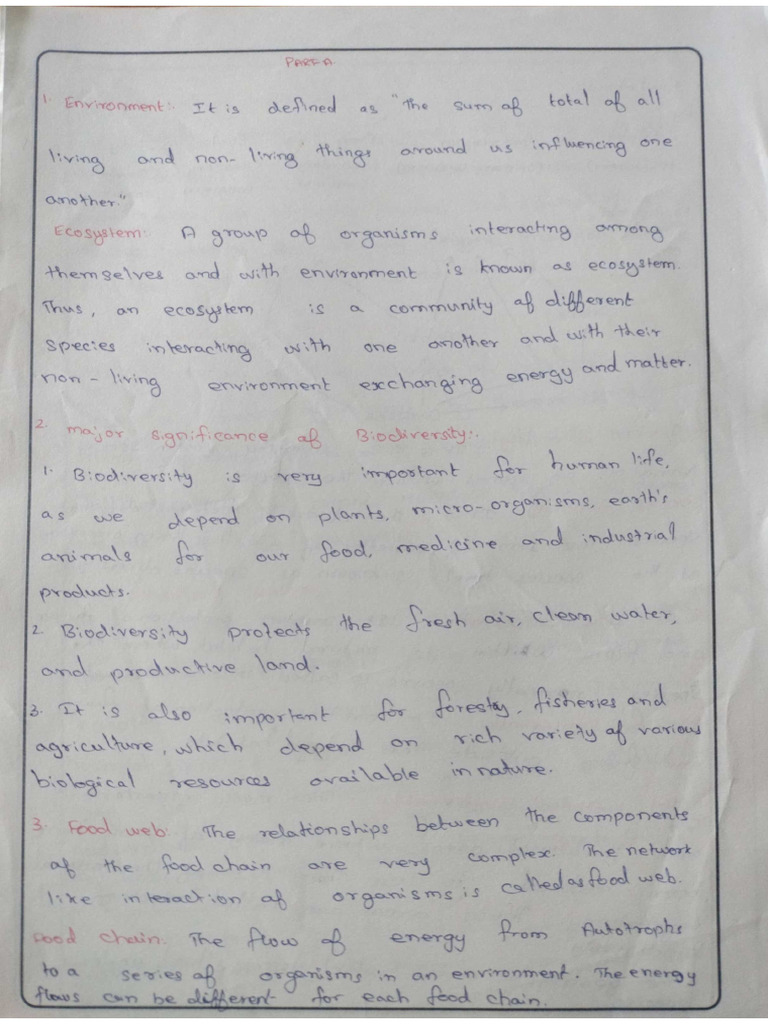 PART A.
1. Environment:- It is defined as "The sum of total of all
living and non-living things around us influencing one
another."
Ecosystem:- A group of organisms interacting among
themselves and with environment is known as ecosystem.
Thus, an ecosystem is a community of different
species interacting with one another and with their
non-living environment exchanging energy and matter.
2. major significance of Biodiversity:-
1. Biodiversity is very important for human life,
as we depend on plants, micro-organisms, earth's
animals for our food, medicine and industrial
products.
2. Biodiversity protects the fresh air, clean water,
and productive land.
3. It is also important for forestry, fisheries and
agriculture, which depend on rich variety of various
biological resources available in nature.
3. Food web: The relationships between the components
of the food chain are very complex. The network
like interaction of organisms is called as food web.
Food chain. The flow of energy from Autotrophs
to a series of organisms in an environment. The energy
flows can be different for each food chain.